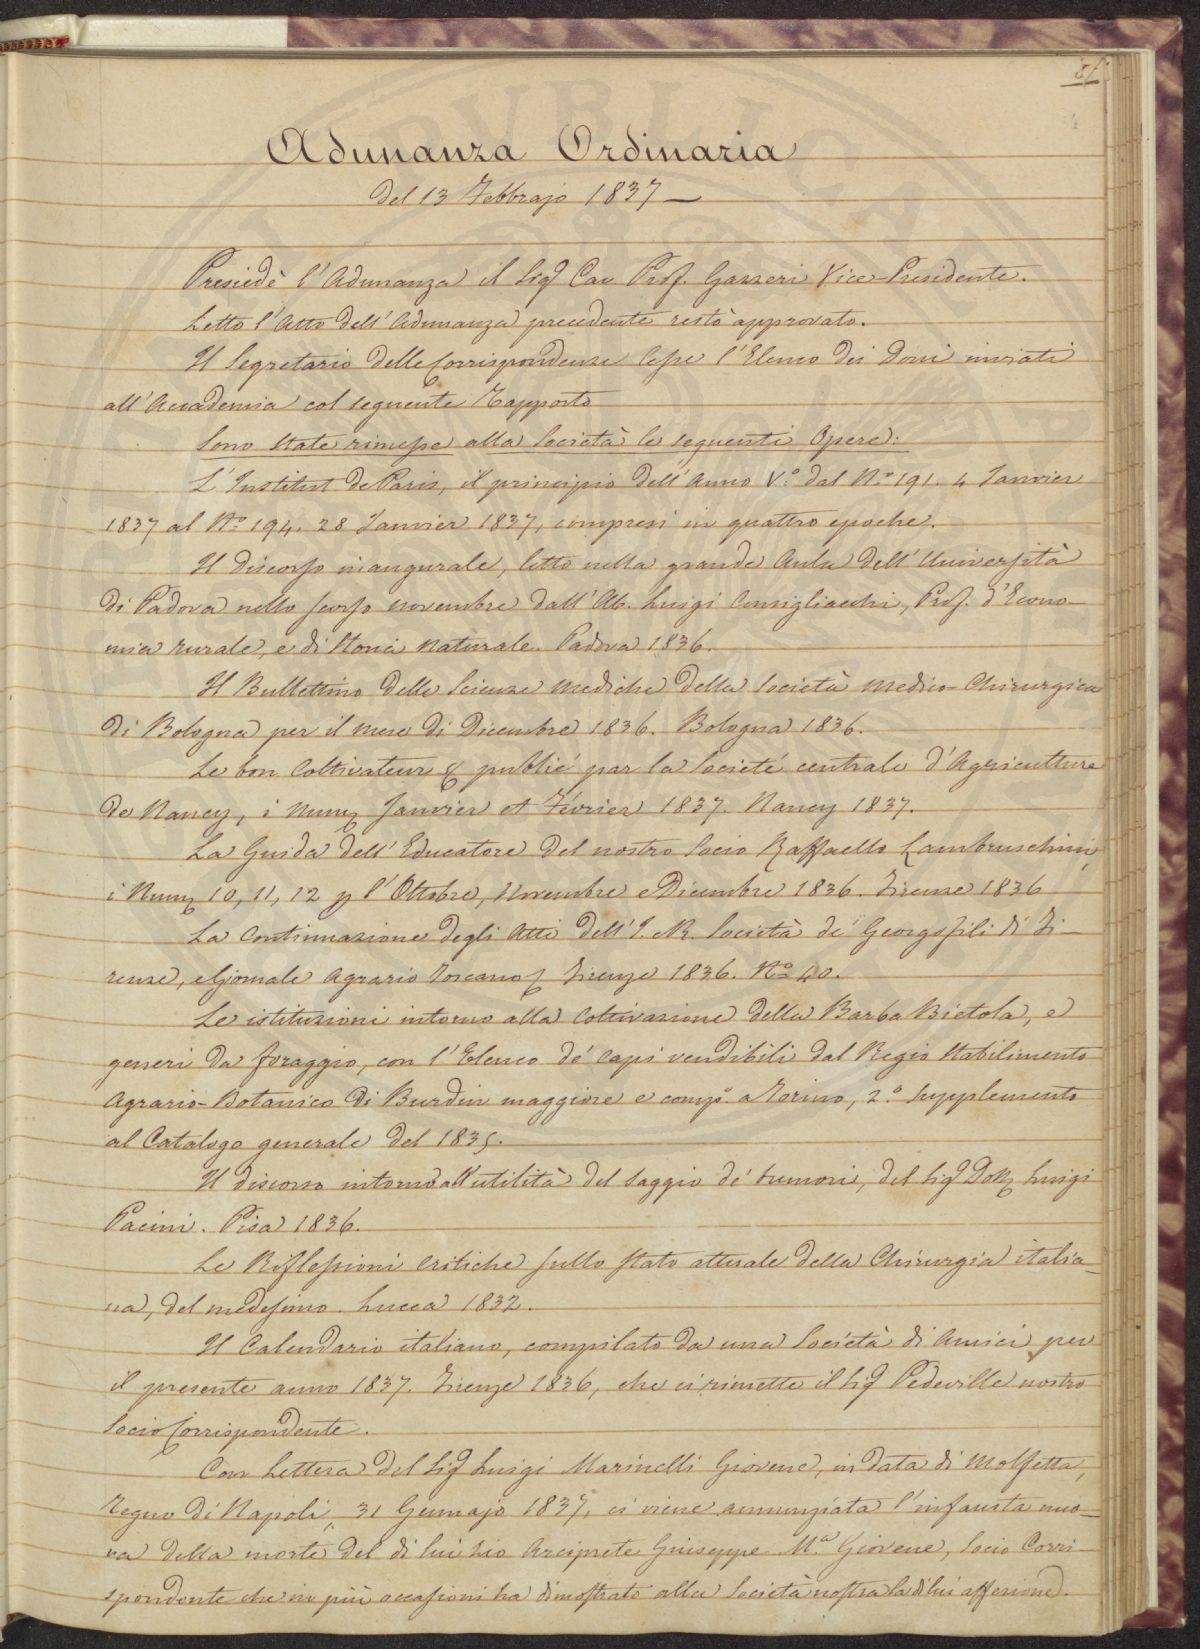 Adunanza Ordinaria
del 13 Febbrajo 1837 —
Presiedè l'Adunanza il Sigr Cav Prof. Gazzeri Vice-Presidente.
Letto l'Atto dell'Adunanza precedente restò approvato.
Il Segretario delle Corrispondenze lesse l'Elenco dei Doni inviati
all'Accademia col seguente Rapporto
Sono state rimesse alla Società le seguenti Opere:
L'Institut de Paris, il principio dell'Anno V.o dal N.o 191. 4 Janvier
1837 al N.o 194. 28 Janvier 1837, compresi in quattro epoche.
Il discorso inaugurale, letto nella grande Aula dell'Università
di Padova nello scorso novembre dall'Ab. Luigi Consigliacchi, Prof. d'Econo-
mia rurale, e di Storia Naturale. Padova 1836.
Il Bullettino delle Scienze Mediche della Società Medico-Chirurgica
di Bologna per il mese di Dicembre 1836. Bologna 1836.
Le bon Coltivateur & publié par la Societé centrale d'Agriculture
de Nancy, i Num. Janvier et Février 1837. Nancy 1837.
La Guida dell'Educatore del nostro Socio Raffaello Lambruschini,
i Num. 10, 11, 12 p l'Ottobre, Novembre e Dicembre 1836. Firenze 1836
La Continuazione degli Atti dell'I. e R. Società de' Georgofili di Fi-
renze, e Giornale Agrario Toscano Firenze 1836. N.o 40.
Le istituzioni intorno alla Coltivazione della Barba Bietola, e
generi da foraggio, con l'Elenco de' Capi vendibili dal Regio Stabilimento
Agrario-Botanico di Burdin maggiore e comp.o a Torino, 2.o Supplemento
al Catalogo generale del 1835.
Il discorso intorno all'utilità del saggio de' tumori, del Sigr Dott. Luigi
Pacini. Pisa 1836.
Le Riflessioni Critiche sullo stato attuale della Chirurgia italia-
na, del medesimo. Lucca 1832.
Il Calendario italiano, compilato da una Società di Amici per
il presente anno 1837. Firenze 1836, che ci rimette il Sigr Pedeville nostro
Socio Corrispondente.
Con Lettera del Sigr Luigi Marinelli Giovene, in data di Molfetta,
Regno di Napoli, 31 Gennajo 1837, ci viene annunziata l'infausta nuo-
va della morte del di lui zio Arciprete Giuseppe M.a Giovene, Socio Corri-
spondente che in più occasioni ha dimostrato alla Società nostra la di lui affezione.